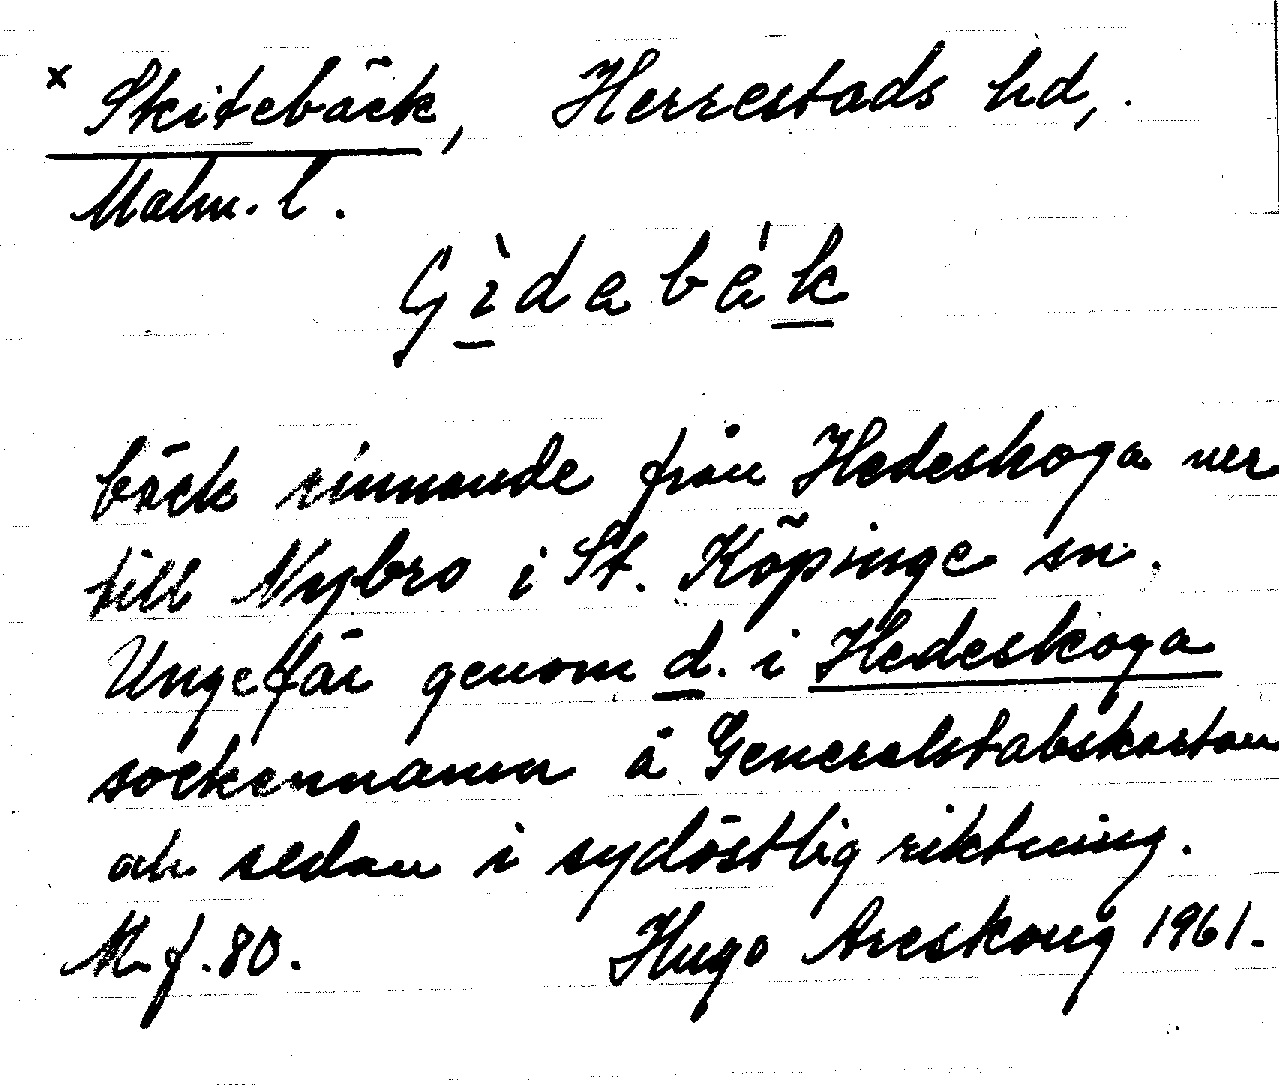 x Skitebäck, Herrestads hd,.
Malm. l.
Gìdabák
bäck rinnande från Hedeskoga ner
till Nybro i St. Köpinge sn.
Ungefär genom d. i Hedeskoga
sockennamn å Generalstabskartan
och sedan i sydöstlig riktning.
M. f. 80. Hugo Areskoug 1961.